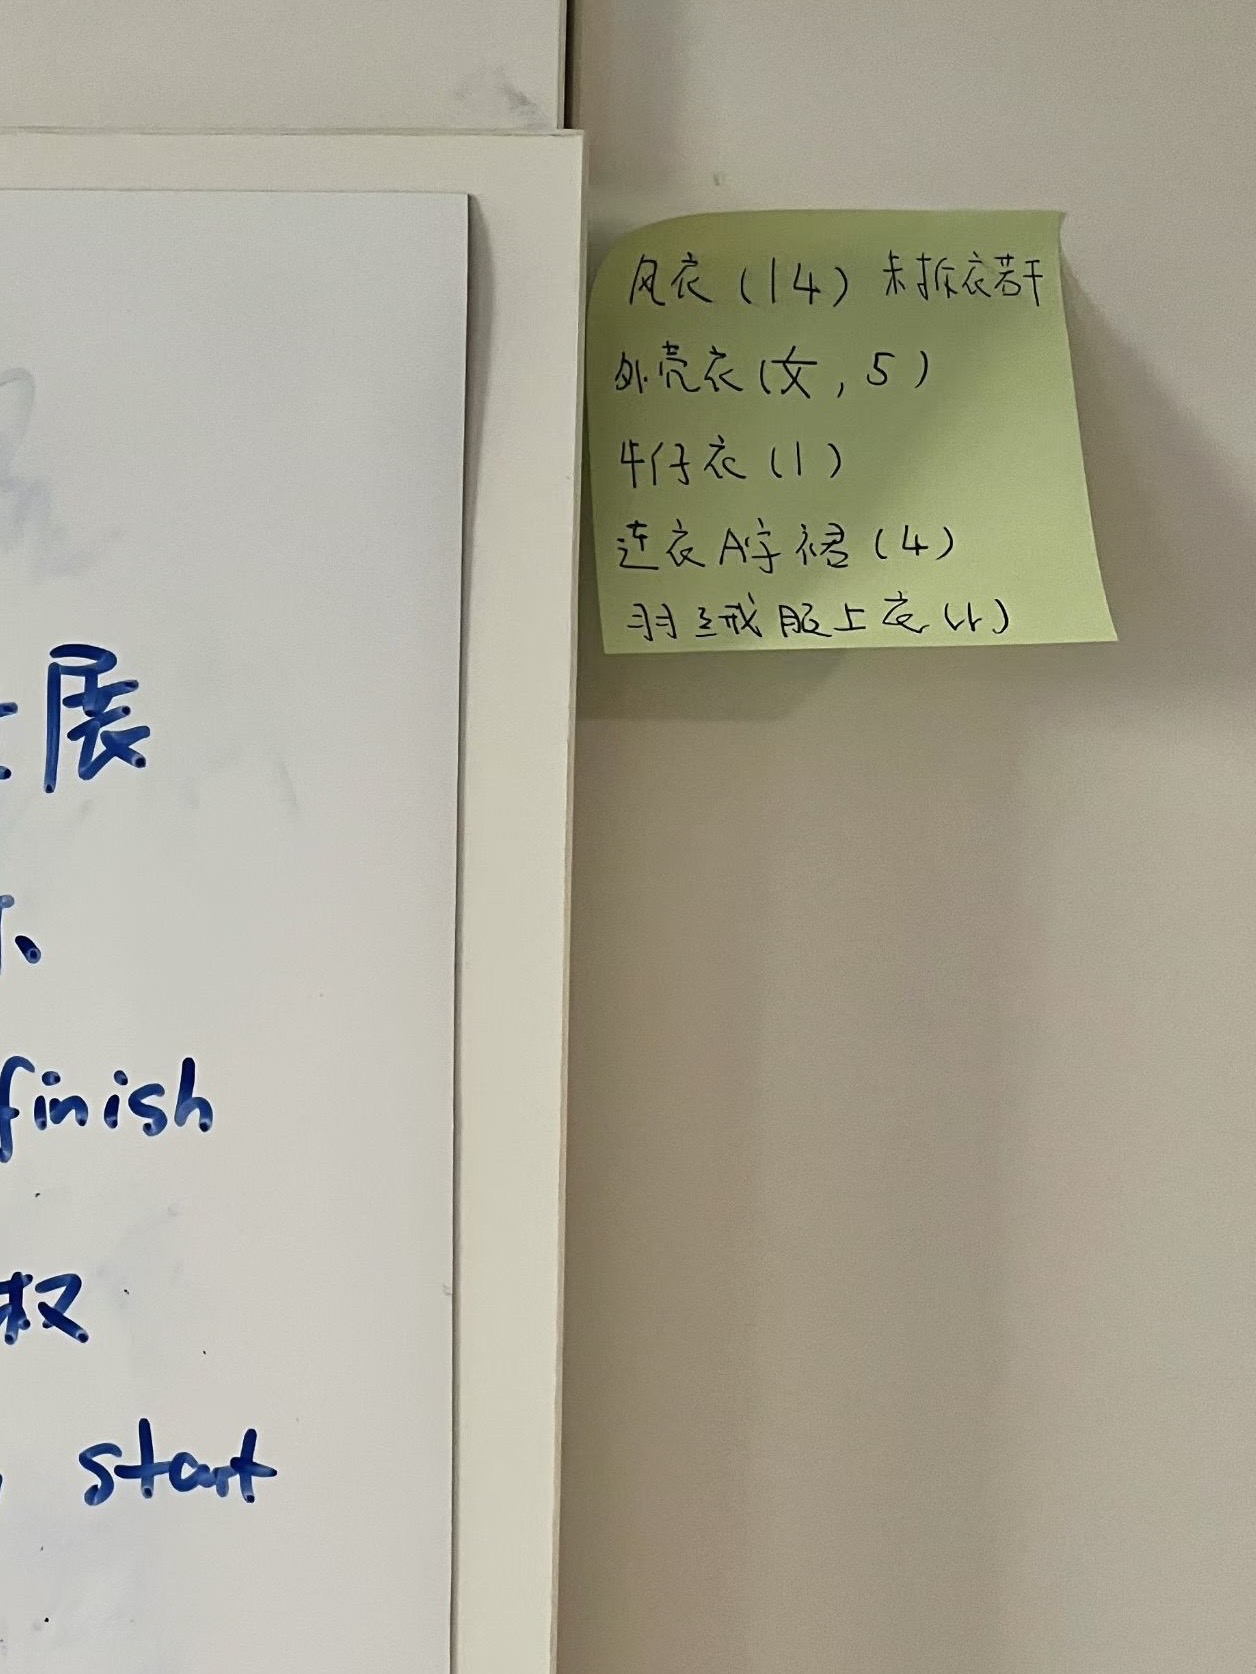 风衣（14）未拆衣若干
外壳衣（女，5）
牛仔衣（1）
连衣A字裙（4）
羽绒服上衣
展
finish
权
start